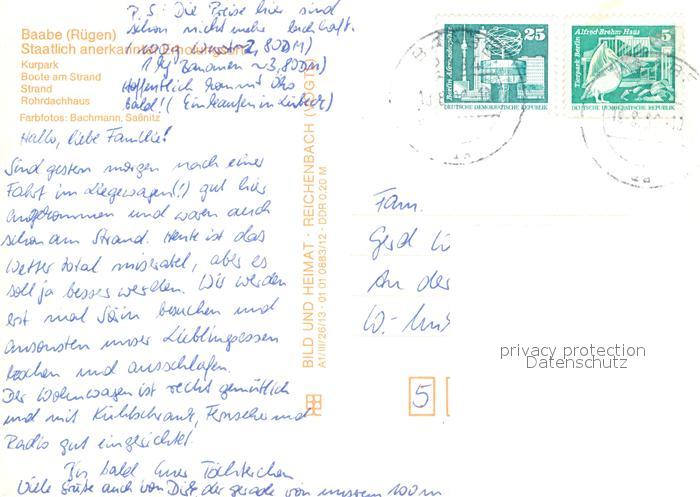 P.S: Die Preise hier sind
schon nicht mehr
100g Wurst 2,80DM)
1 kg Bananen ~3,80DM)
Hoffentlich kommt Öko
Bald!! (Einkaufen in Lübeck)
Baabe (Rügen)
Staatlich anerkannter Erholungsort
Kurpark
Boote am Strand
Strand
Rohrdachhaus
Farbfotos: Bachmann, Saßnitz
Hallo, liebe Familie!
Sind gestern morgen nach einer
Fahrt im Liegewagen(!) gut hier
angekommen und waren auch
schon am Strand. Heute ist das
Wetter total miserabel, aber es
soll ja besser werden. Wir werden
erst mal besuchen und
ansonsten unser Lieblingsessen
kochen und ausschlafen.
Der Wohnwagen ist recht gemütlich
und mit Kühlschrank, Fernseher und
Radio gut eingerichtet.
Bis bald Euer Töchterchen
Viele Grüße auch von der gerade von unserem 100m
BILD UND HEIMAT · REICHENBACH (VOGTL)
A1/III/26/13 · 01 01 0883/12 · DDR 0,20 M
25
DEUTSCHE DEMOKRATISCHE REPUBLIK
Tierpark Berlin
Alfred-Brehm-Haus
5
DEUTSCHE DEMOKRATISCHE REPUBLIK
Fam.
Gerd
An der
W-
5
privacy protection
Datenschutz